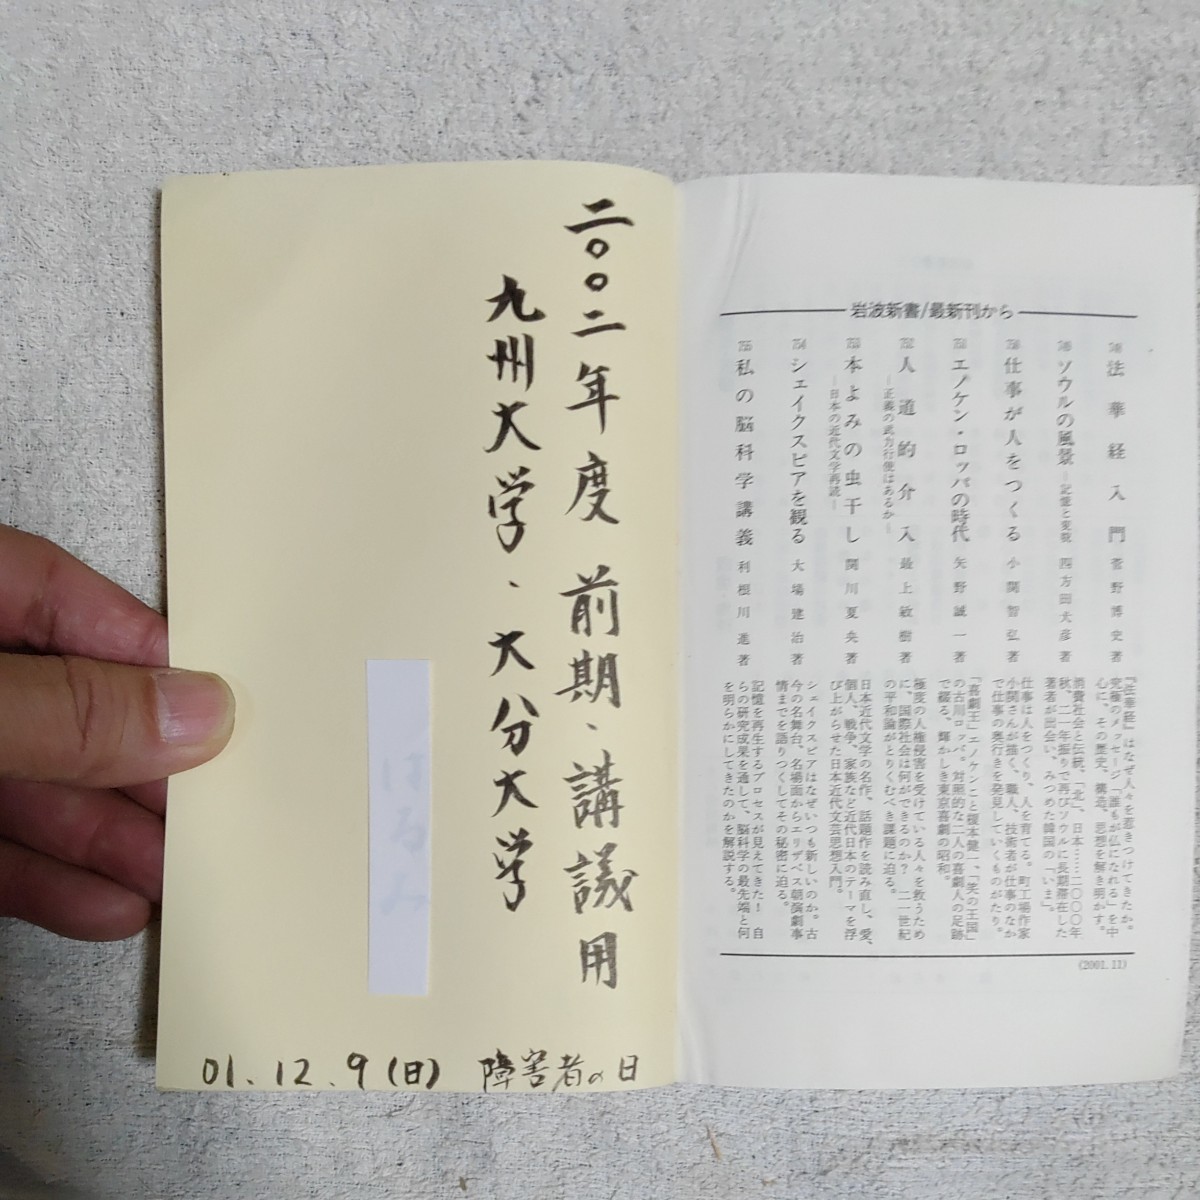 二〇〇二年度 前期・講議用
九州大学・大分大学
はるみ
01.12.9(日) 障害者の日
岩波新書/最新刊から
748 法華経入門 菅野博史著
『法華経』はなぜ人々を惹きつけてきたか。
究極のメッセージ「誰もが仏になれる」を中
心に、その歴史、構造、思想を解き明かす。
749 ソウルの風景 ―記憶と変貌― 四方田犬彦著
消費社会と伝統、「北」、日本……二〇〇〇年
秋、二一年振りで再びソウルに長期滞在した
著者が出会い、みつめた韓国の「いま」。
750 仕事が人をつくる 小関智弘著
仕事は人をつくり、人を育てる。町工場作家
小関さんが描く、職人、技術者が仕事のなか
で仕事の奥行きを発見していくものがたり。
751 エノケン・ロッパの時代 矢野誠一著
「喜劇王」エノケンこと榎本健一、「笑の王国」
の古川ロッパ。対照的な二人の喜劇人の足跡
で綴る、輝かしき東京喜劇の昭和。
752 人道的介入 ―正義の武力行使はあるか― 最上敏樹著
極度の人権侵害を受けている人々を救うため
に、国際社会は何ができるのか? 二一世紀
の平和論がとりくむべき課題に迫る。
753 本よみの虫干し ―日本の近代文学再読― 関川夏央著
日本近代文学の名作、話題作を読み直し、愛、
個人、戦争、家族など近代日本のテーマを浮
び上がらせた日本近代文芸思想入門。
754 シェイクスピアを観る 大場建治著
シェイクスピアはなぜいつも新しいのか。古
今の名舞台、名場面からエリザベス朝演劇事
情までを語りつくしてその秘密に迫る。
755 私の脳科学講義 利根川進著
記憶を再生するプロセスが見えてきた! 自
らの研究成果を通して、脳科学の最先端と何
を明らかにしてきたのかを解説する。
(2001.11)